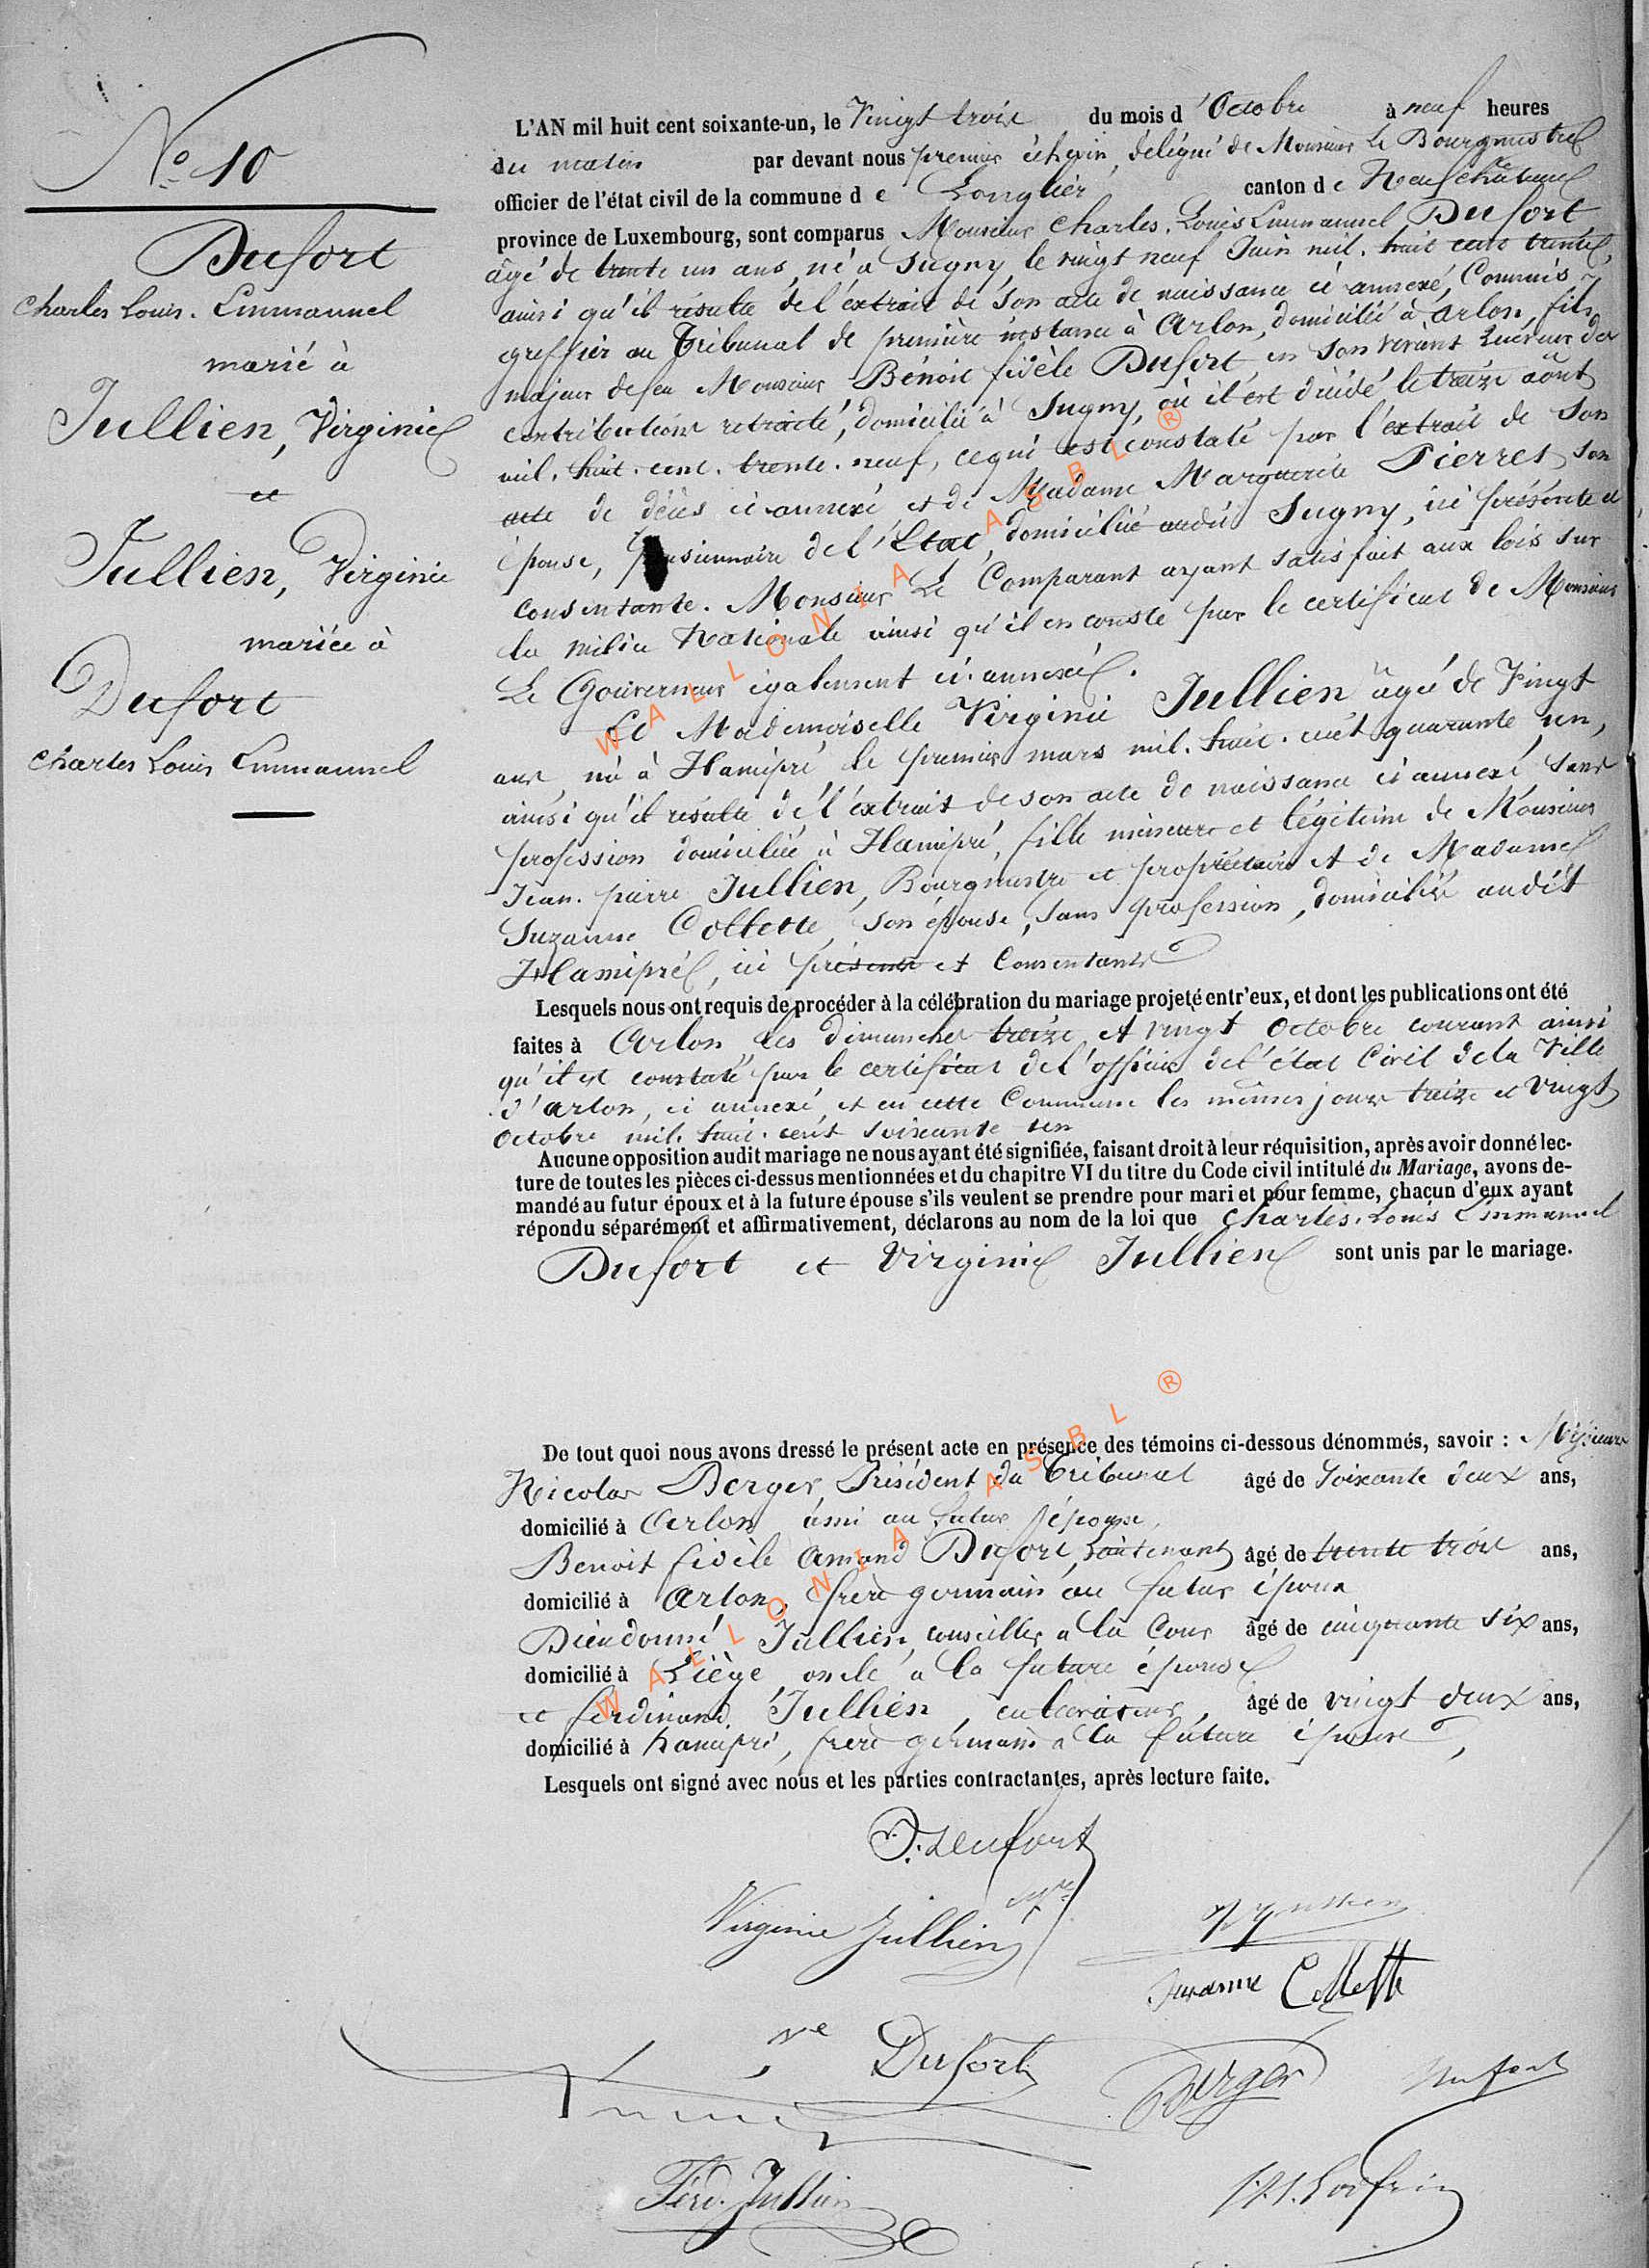 No 10
Dufort
Charles Louis. Emmanuel
marié à
Jullien, Virginie
et
Jullien, Virginie
mariée à
Dufort
Charles Louis Emmanuel
L'AN mil huit cent soixante-un, le Vingt trois du mois d'Octobre à neuf heures
du matin par devant nous premier échevin, délégué de Monsieur Le Bourgmestre
officier de l'état civil de la commune de Longlier canton de Neufchâteau
province de Luxembourg, sont comparus Monsieur Charles. Louis Emmanuel Dufort
âgé de trente un ans, né à Sugny, le vingt neuf Juin mil. huit cent trente,
ainsi qu'il résulte de l'extrait de son acte de naissance ci annexé, Commis
greffier au Tribunal de première instance à Arlon, domicilié à Arlon, fils
majeur de feu Monsieur Benoit fidèle Dufort, en son vivant Receveur des
contributions retraité, domicilié à Sugny, où il est décédé le treize août
mil. huit. cent. trente. neuf, ce qui est constaté par l'extrait de son
acte de décès ci annexé et de Madame Marguerite Pierret, son
épouse, pensionnaire de l'Etat, domiciliée audit Sugny, ici présente et
consentante. Monsieur Le Comparant ayant satisfait aux lois sur
la milice Nationale ainsi qu'il en conste par le certificat de Monsieur
Le Gouverneur également ci. annexé.
Et Mademoiselle Virginie Jullien âgée de Vingt
ans, née à Hamipré, le premier mars mil. huit. cent quarante un,
ainsi qu'il résulte de l'extrait de son acte de naissance ci annexé, sans
profession domiciliée à Hamipré, fille mineure et légitime de Monsieur
Jean. pierre Jullien, Bourgmestre et propriétaire et de Madame
Suzanne Collette, son épouse, sans profession, domiciliés audit
Hamipré, ici présents et Consentants
Lesquels nous ont requis de procéder à la célébration du mariage projeté entr'eux, et dont les publications ont été
faites à Arlon les dimanches treize et vingt Octobre courant ainsi
qu'il est constaté par le certificat de l'officier de l'état Civil de la Ville
d'Arlon, ci annexé, et en cette Commune les mêmes jours treize et vingt
Octobre mil. huit. cent soixante un
Aucune opposition audit mariage ne nous ayant été signifiée, faisant droit à leur réquisition, après avoir donné lec-
ture de toutes les pièces ci-dessus mentionnées et du chapitre VI du titre du Code civil intitulé du Mariage, avons de-
mandé au futur époux et à la future épouse s'ils veulent se prendre pour mari et pour femme, chacun d'eux ayant
répondu séparément et affirmativement, déclarons au nom de la loi que Charles. Louis Emmanuel
Dufort et Virginie Jullien sont unis par le mariage.
De tout quoi nous avons dressé le présent acte en présence des témoins ci-dessous dénommés, savoir : Messieurs
Nicolas Berger, Président du Tribunal âgé de Soixante deux ans,
domicilié à Arlon ami au futur époux,
Benoit fidèle Amand Dufort, Lieutenant âgé de trente trois ans,
domicilié à Arlon, frère germain au futur époux
Dieudonné Jullien, conseiller à la Cour âgé de cinquante six ans,
domicilié à Liège oncle à la future épouse
et ferdinand Jullien, cultivateur, âgé de vingt deux ans,
domicilié à hamipré, frère germain à la future épouse,
Lesquels ont signé avec nous et les parties contractantes, après lecture faite.
Dufort
Virginie Jullien
Suzanne Collette
Ve Dufort
Berger
Dufort
Ferd. Jullien
WALLONIA ASBL ®
WALLONIA ASBL ®